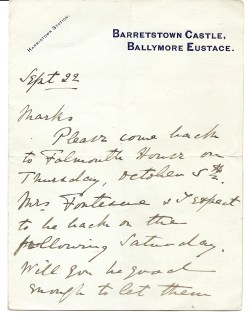 Harristown Station.
Barretstown Castle,
Ballymore Eustace.
Sept 22
Marks
Please come back
to Falmouth House on
Thursday, October 5th.
Mrs Fontescue & I expect
to be back on the
following Saturday.
Will you be good
enough to let them